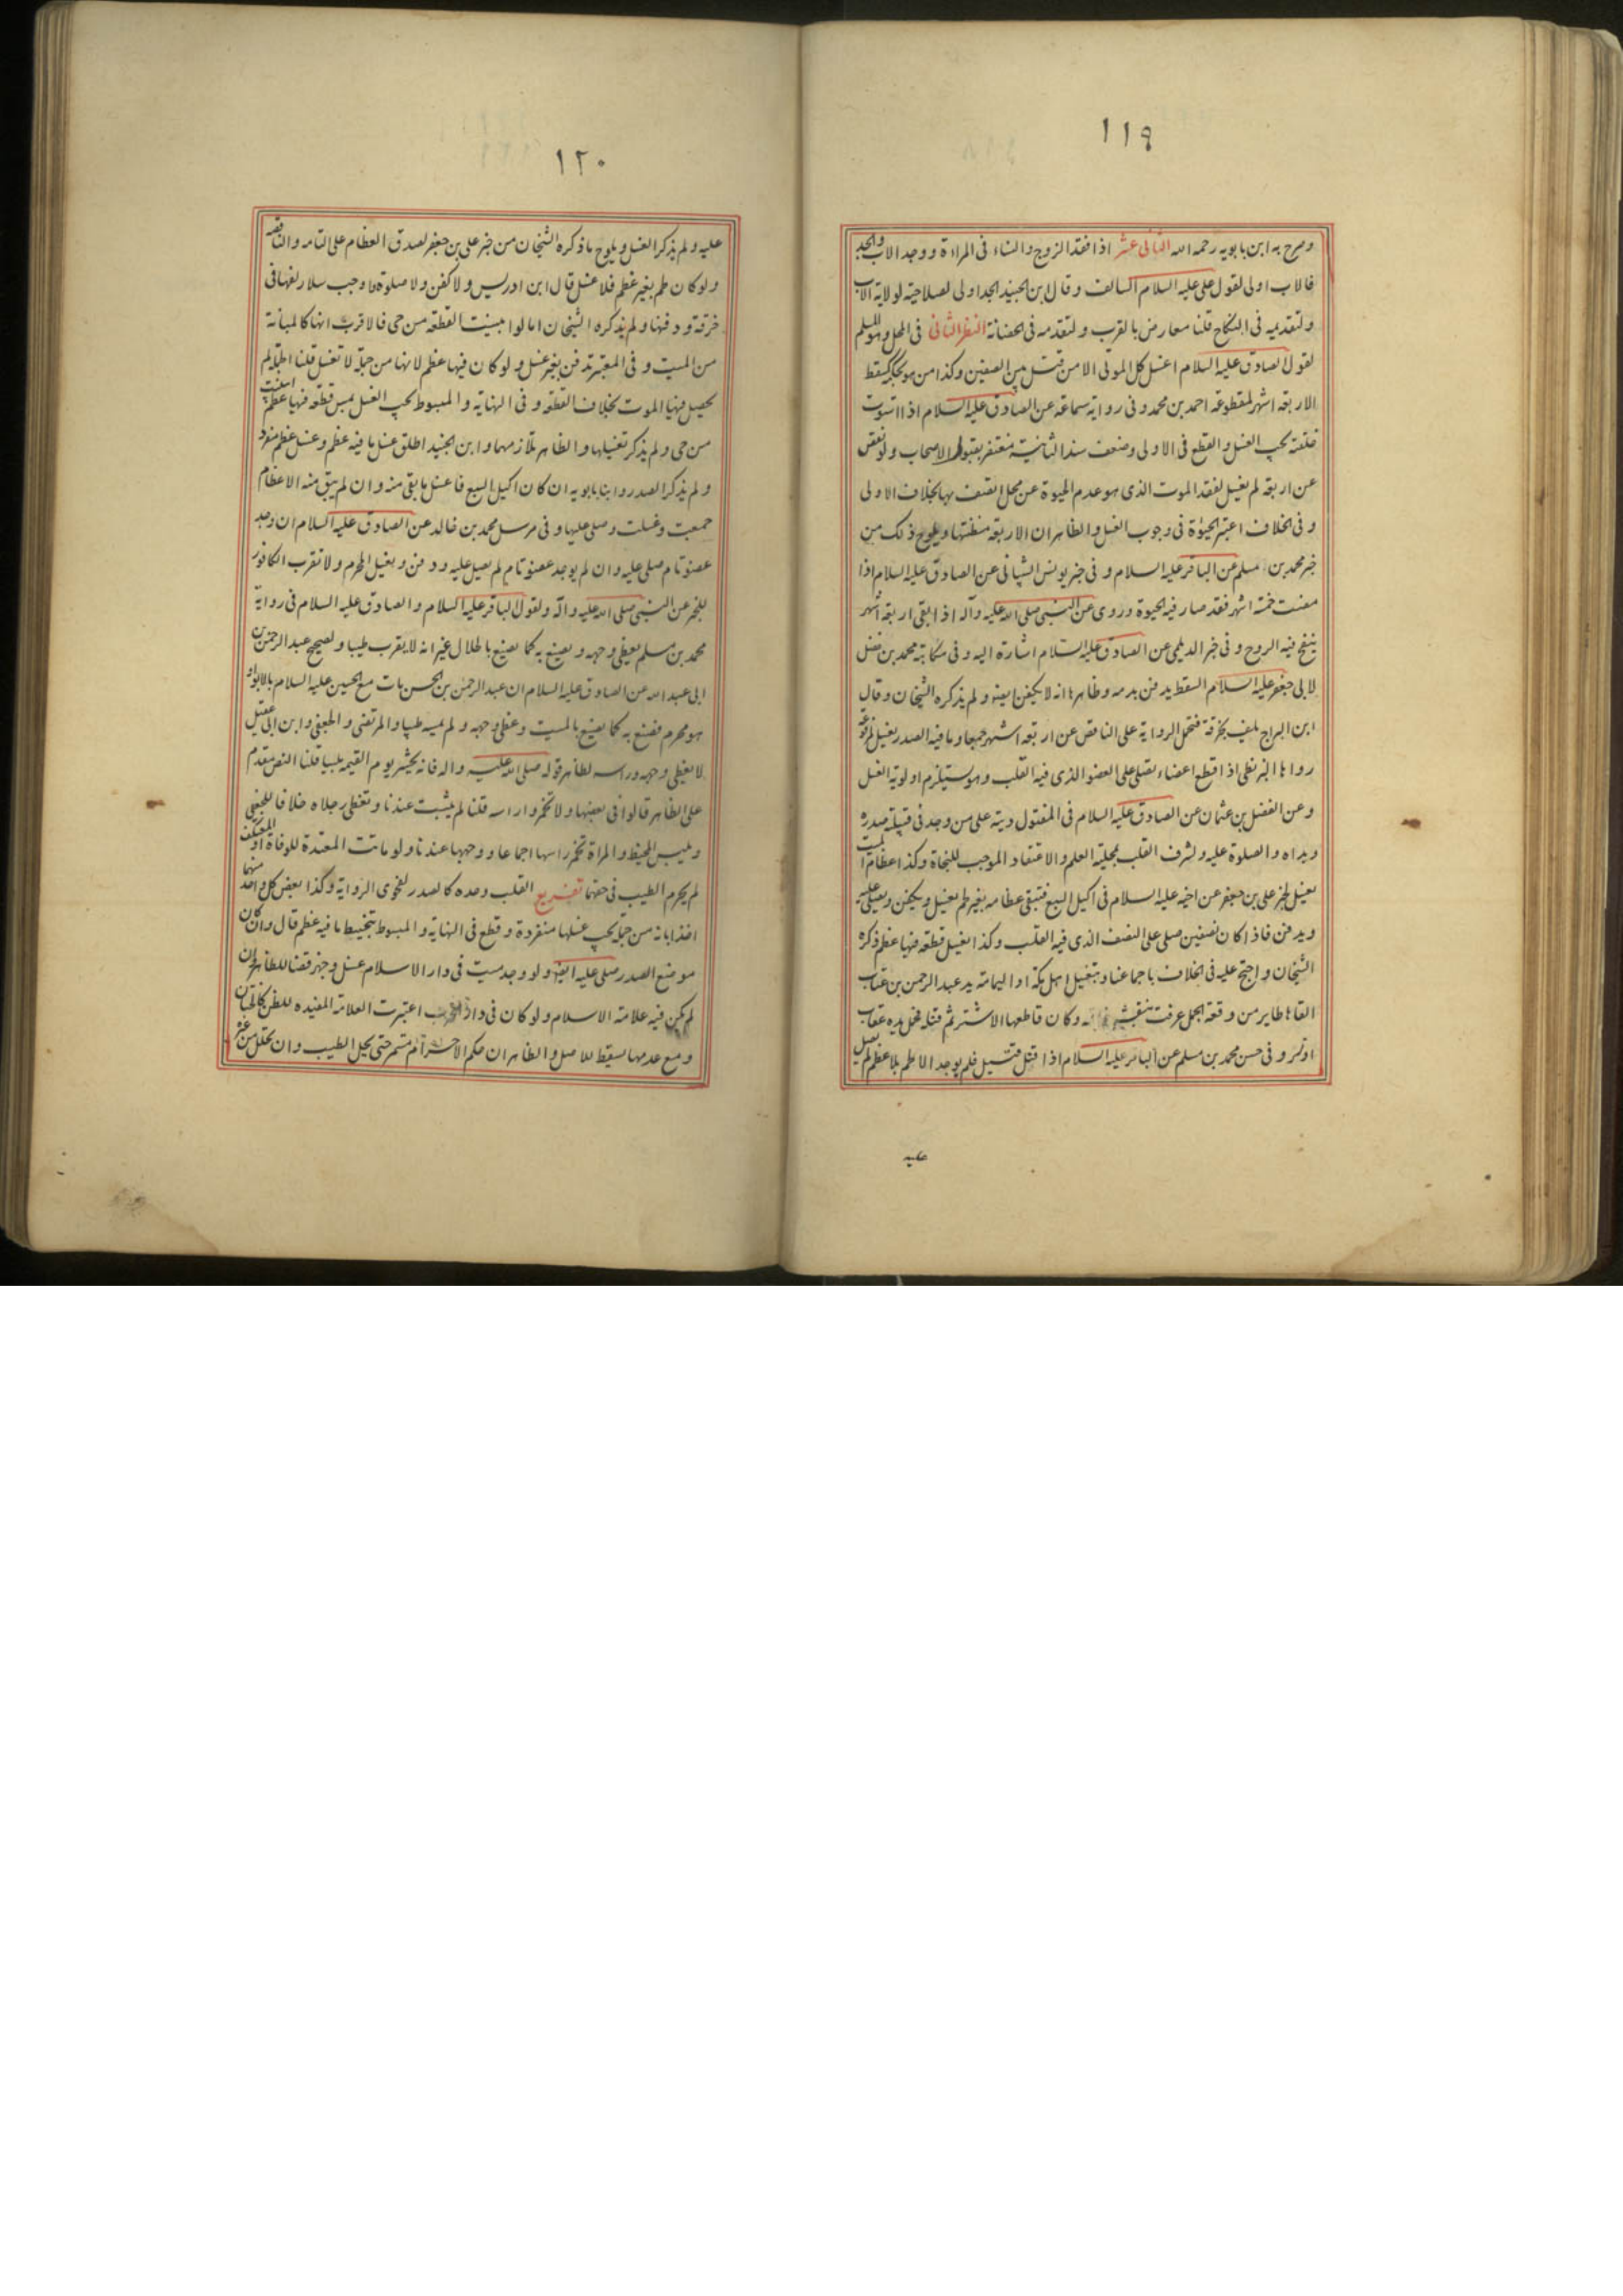 ١١٩
وصرح به ابن بابويه رحمه الله الثانى عشر اذا فقد الزوج والنساء فى المراءة ووجد الاب والجد
فالاب اولى لقول على عليه السلام السالف وقال ابن الجنيد الجد اولى لصلاحيته لولاية الاب
ولتقديمه فى النكاح قلنا معارض بالقرب ولتقدمه فى الحضانة النظر الثانى فى المحل وهو المسلم
لقول الصادق عليه السلام اغسل كل الموتى الا من قتل بين الصفين وكذا من هو بحكمه كسقط
الاربعة اشهر لمقطوعة احمد بن محمد وفى رواية سماعة عن الصادق عليه السلام اذا استوت
خلقته يجب الغسل والقطع فى الاولى وضعف سند الثانية مغتفر بقبول الاصحاب ولو نقص
عن اربعة لم يغسل لفقد الموت الذى هو عدم الحيوة عن محل اتصف بها بخلاف الاولى
وفى الخلاف اعتبر الحيوة فى وجوب الغسل والظاهر ان الاربعة مظنتها ويلوح ذلك من
خبر محمد بن مسلم عن الباقر عليه السلام وفى خبر يونس الشيبانى عن الصادق عليه السلام اذا
مضت خمسة اشهر فقد صار فيه الحيوة وروى عن النبى صلى الله عليه وآله اذا بقى اربعة اشهر
ينفخ فيه الروح وفى خبر الديلمى عن الصادق عليه السلام اشارة اليه وفى مكاتبة محمد بن فضل
لابى جعفر عليه السلام السقط يدفن بدمه وظاهرها انه لا يكفن ايضا ولم يذكره الشيخان وقال
ابن البراج يلف بخرقة فتحمل الرواية على الناقص عن اربعة اشهر جمعا وما فيه الصدر يغسل لمرفوعة
رواها البزنطى اذا قطع اعضاء يصلى على العضو الذى فيه القلب وهو يستلزم اولوية الغسل
وعن الفضل بن عثمان عن الصادق عليه السلام فى المقتول ديته على من وجد فى قبيلته صدره
ويداه والصلوة عليه ولشرف القلب بمحلية العلم والاعتقاد الموجب للنجاة وكذا عظام الميت
يغسل لخبر على بن جعفر عن اخيه عليه السلام فى اكيل السبع فتبقى عظامه بغير لحم يغسل ويكفن ويصلى عليه
ويدفن فاذا كان نصفين صلى على النصف الذى فيه القلب وكذا يغسل قطعة فيها عظم ذكره
الشيخان واحتج عليه فى الخلاف باجماعنا وبتغسيل اهل مكة او اليمامة يد عبد الرحمن بن عتاب
القاها طاير من وقعة الجمل عرفت بنقش وكان قاطعها الاشتر ثم قتله فحمل يده عقاب
او نسر وفى حسن محمد بن مسلم عن الباقر عليه السلام اذا قتل قتيل فلم يوجد الا لحم بلا عظم لم يصل
عليه
١٢٠
عليه ولم يذكر الغسل ويلوح ما ذكره الشيخان من خبر على بن جعفر لصدق العظام على التامة والناقصة
ولو كان لحم بغير عظم فلا غسل قال ابن ادريس ولا كفن ولا صلوة واوجب سلار لفها فى
خرقة ودفنها ولم يذكره الشيخان اما لو ابينت القطعة من حى فالاقرب انها كالمبانة
من الميت وفى المعتبر تدفن بغير غسل ولو كان فيها عظم لانها من جملة لا تغسل قلنا الجملة لم
يحصل فيها الموت بخلاف القطعة وفى النهاية والمبسوط يجب الغسل بمس قطعة فيها عظم ابينت
من حى ولم يذكر تغسيلها والظاهر تلازمهما وابن الجنيد اطلق غسل ما فيه عظم وغسل عظم مفرد
ولم يذكر الصدر وابنا بابويه ان كان اكيل السبع فاغسل ما بقى منه وان لم يبق منه الا عظام
جمعت وغسلت وصلى عليها وفى مرسل محمد بن خالد عن الصادق عليه السلام ان وجد
عضو تام صلى عليه وان لم يوجد عضو تام لم يصل عليه ودفن ويغسل المحرم ولا تقرب الكافور
للخبر عن النبى صلى الله عليه وآله ولقول الباقر عليه السلام والصادق عليه السلام فى رواية
محمد بن مسلم يغطى وجهه ويصنع به كما يصنع بالحلال غير انه لا يقرب طيبا ولصحيح عبد الرحمن بن
ابى عبد الله عن الصادق عليه السلام ان عبد الرحمن بن الحسن مات مع الحسين عليه السلام بالابواء
هو محرم فصنع به كما يصنع بالميت وغطى وجهه ولم يمسه طيبا والمرتضى والجعفى وابن ابى عقيل
لا يغطى وجهه وراسه لظاهر قوله صلى الله عليه واله فانه يحشر يوم القيمة ملبيا قلنا النص مقدم
على الظاهر قالوا فى بعضها ولا تخمروا راسه قلنا لم يثبت عندنا وتغطى رجلاه خلافا للجعفى
ويلبس المخيط والمراة تخمر راسها اجماعا ووجهها عندنا ولو ماتت المعتدة للوفاة او المعتكف
لم يحرم الطيب فى حقهما تفريع القلب وحده كالصدر لفحوى الرواية وكذا بعض كل واحد منهما
اخذا بانه من جملة يجب غسلها منفردة وقطع فى النهاية والمبسوط بتحنيط ما فيه عظم قال وان كان
موضع الصدر صلى عليه ايضا ولو وجد ميت فى دار الاسلام غسل وجهز قضاء للظاهر وان
لم يكن فيه علامة الاسلام ولو كان فى دار الحرب اعتبرت العلامة المفيدة للظن كالختان
ومع عدمها يسقط للاصل والظاهر ان حكم الاحرام مستمر حتى يحل الطيب وان تحلل من غيره